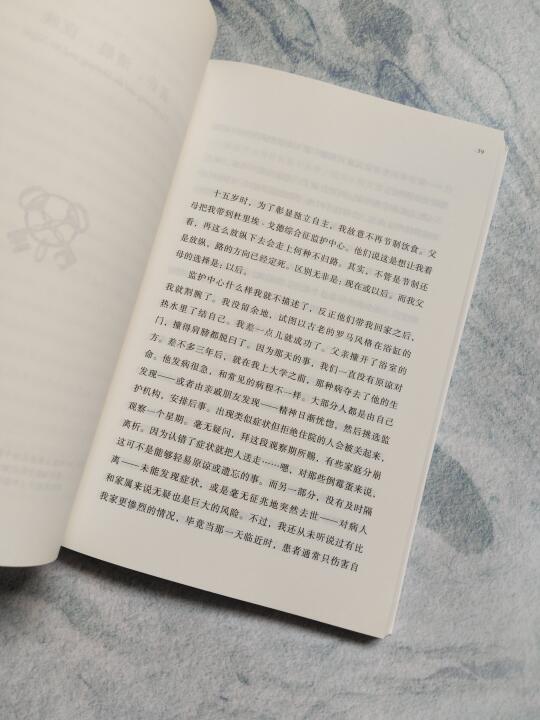 39
十五岁时，为了彰显独立自主，我故意不再节制饮食。父
母把我带到杜里埃－戈德综合征监护中心。他们说这是想让我看
看，再这么放纵下去会走上何种不归路。其实，不管是节制还
是放纵，路的方向已经定死。区别无非是：现在或以后。而我父
母的选择是：以后。
监护中心什么样我就不描述了，反正他们带我回家之后，
我就割腕了。我没留余地，试图以古老的罗马风格在浴缸的
热水里了结自己。我差一点儿就成功了。父亲撞开了浴室的
门，撞得肩膀都脱臼了。因为那天的事，我们一直没有原谅对
方。差不多三年后，就在我上大学之前，那种病夺去了他的生
命。他发病很急，和常见的病程不一样。大部分人都是由自己
发现——或者由亲戚朋友发现——精神日渐恍惚，然后挑选监
护机构，安排后事。出现类似症状但拒绝住院的人会被关起来，
观察一个星期。毫无疑问，拜这段观察期所赐，有些家庭分崩
离析。因为认错了症状就把人送走……嗯，对那些倒霉蛋来说，
这可不是能够轻易原谅或遗忘的事。而另一部分，没有及时隔
离——未能发现症状，或是毫无征兆地突然去世——对病人
和家属来说无疑也是巨大的风险。不过，我还从未听说过有比
我家更惨烈的情况，毕竟当那一天临近时，患者通常只伤害自